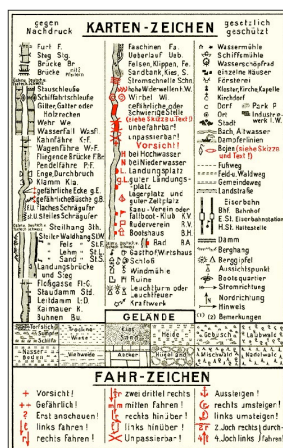 gegen
Nachdruck
KARTEN-ZEICHEN
gesetzlich
geschützt
Furt F.
Steg Stg.
Brücke Br
Brücke mit Pfeilern
Stauschleuße
Schiffahrtschleuße
Gitter, Gatter oder
Holzrechen
Wehr We
Wasserfall Wsfl
Kahnfähre K-F.
Wagenfähre W-F.
Fliegende Brücke F.Br
Pendelfähre P.F.
Enge, Durchbruch
Klamm Kla.
gefährliche Ecke g.E.
gefährliche Büsche g.B.
flaches Schrägufer
steiles Schrägufer
Steilhang Sth.
Steiler Waldhang St.W.
" Fels " St.F.
" Lehm " St.L.
" Sand " St.S.
Landungsbrücke
und Steg
Floßgasse Fl-G.
Staudamm Std.
Leitdamm L.D.
Kaimauer K.
Buhnen Bu.
Faschinen Fa.
Ueberlauf Ueb.
Felsen, Klippen, Fe.
Sandbank, Kies, S.
Stromschnelle Schn.
hohe Widerwellen h.W.
Wirbel Wi
gefährliche oder
schwierige Stelle
(siehe Skizze u Text)
unbefahrbar!
unpassierbar!
Vorsicht!!
bei Hochwasser
bei Niederwasser
Landungsplatz
guter Landungs-
platz
Lagerplatz und
guter Zeltplatz
Kanu-Verein oder
Faltboot-Klub K.V.
Ruderverein R.V.
Bootshaus B.H.
Bad BA
Gasthof Wirtshaus
Schloß
Windmühle
Ruine
Leuchtturm oder
Leuchtfeuer
Kraftwerk
Wassermühle
Schiffmühle
Wasserschöpfrad
einzelne Häuser
Försterei
Kloster, Kirche, Kapelle
Kirchdorf
Dorf
Park P
Ort
Industrie-
werk I.W.
Stadt
Bach, Altwasser
Dampferlinien
Boje (siehe Skizze
und Text)
Fußweg
Feld- u. Waldweg
Gemeindeweg
Landstraße
Eiserbahn
Bhf. Bahnhof
E.St. Eisenbahnstation
H.St. Haltestelle
Damm
Berghang
Berggipfel
Aussichtspunkt
Bootsquartier
Stromrichtung
Nordrichtung
Hinweis
(1) (2) Bemerkungen
GELÄNDE
Heide
Gebüsch
Laubwald
Nasser
Boden
Viehweide
Aecker
Hügelland
Mischwald
Nadelwald
FAHR-ZEICHEN
Vorsicht!
Gefährlich!
Erst anschauen!
links fahren!
rechts fahren!
zwei drittel rechts
mitten fahren!
rechts hinüber!
links hinüber!
Unpassierbar!
Aussteigen!
rechts umsteigen!
links umsteigen!
2. Joch rechts durch-
4. Joch links fahren